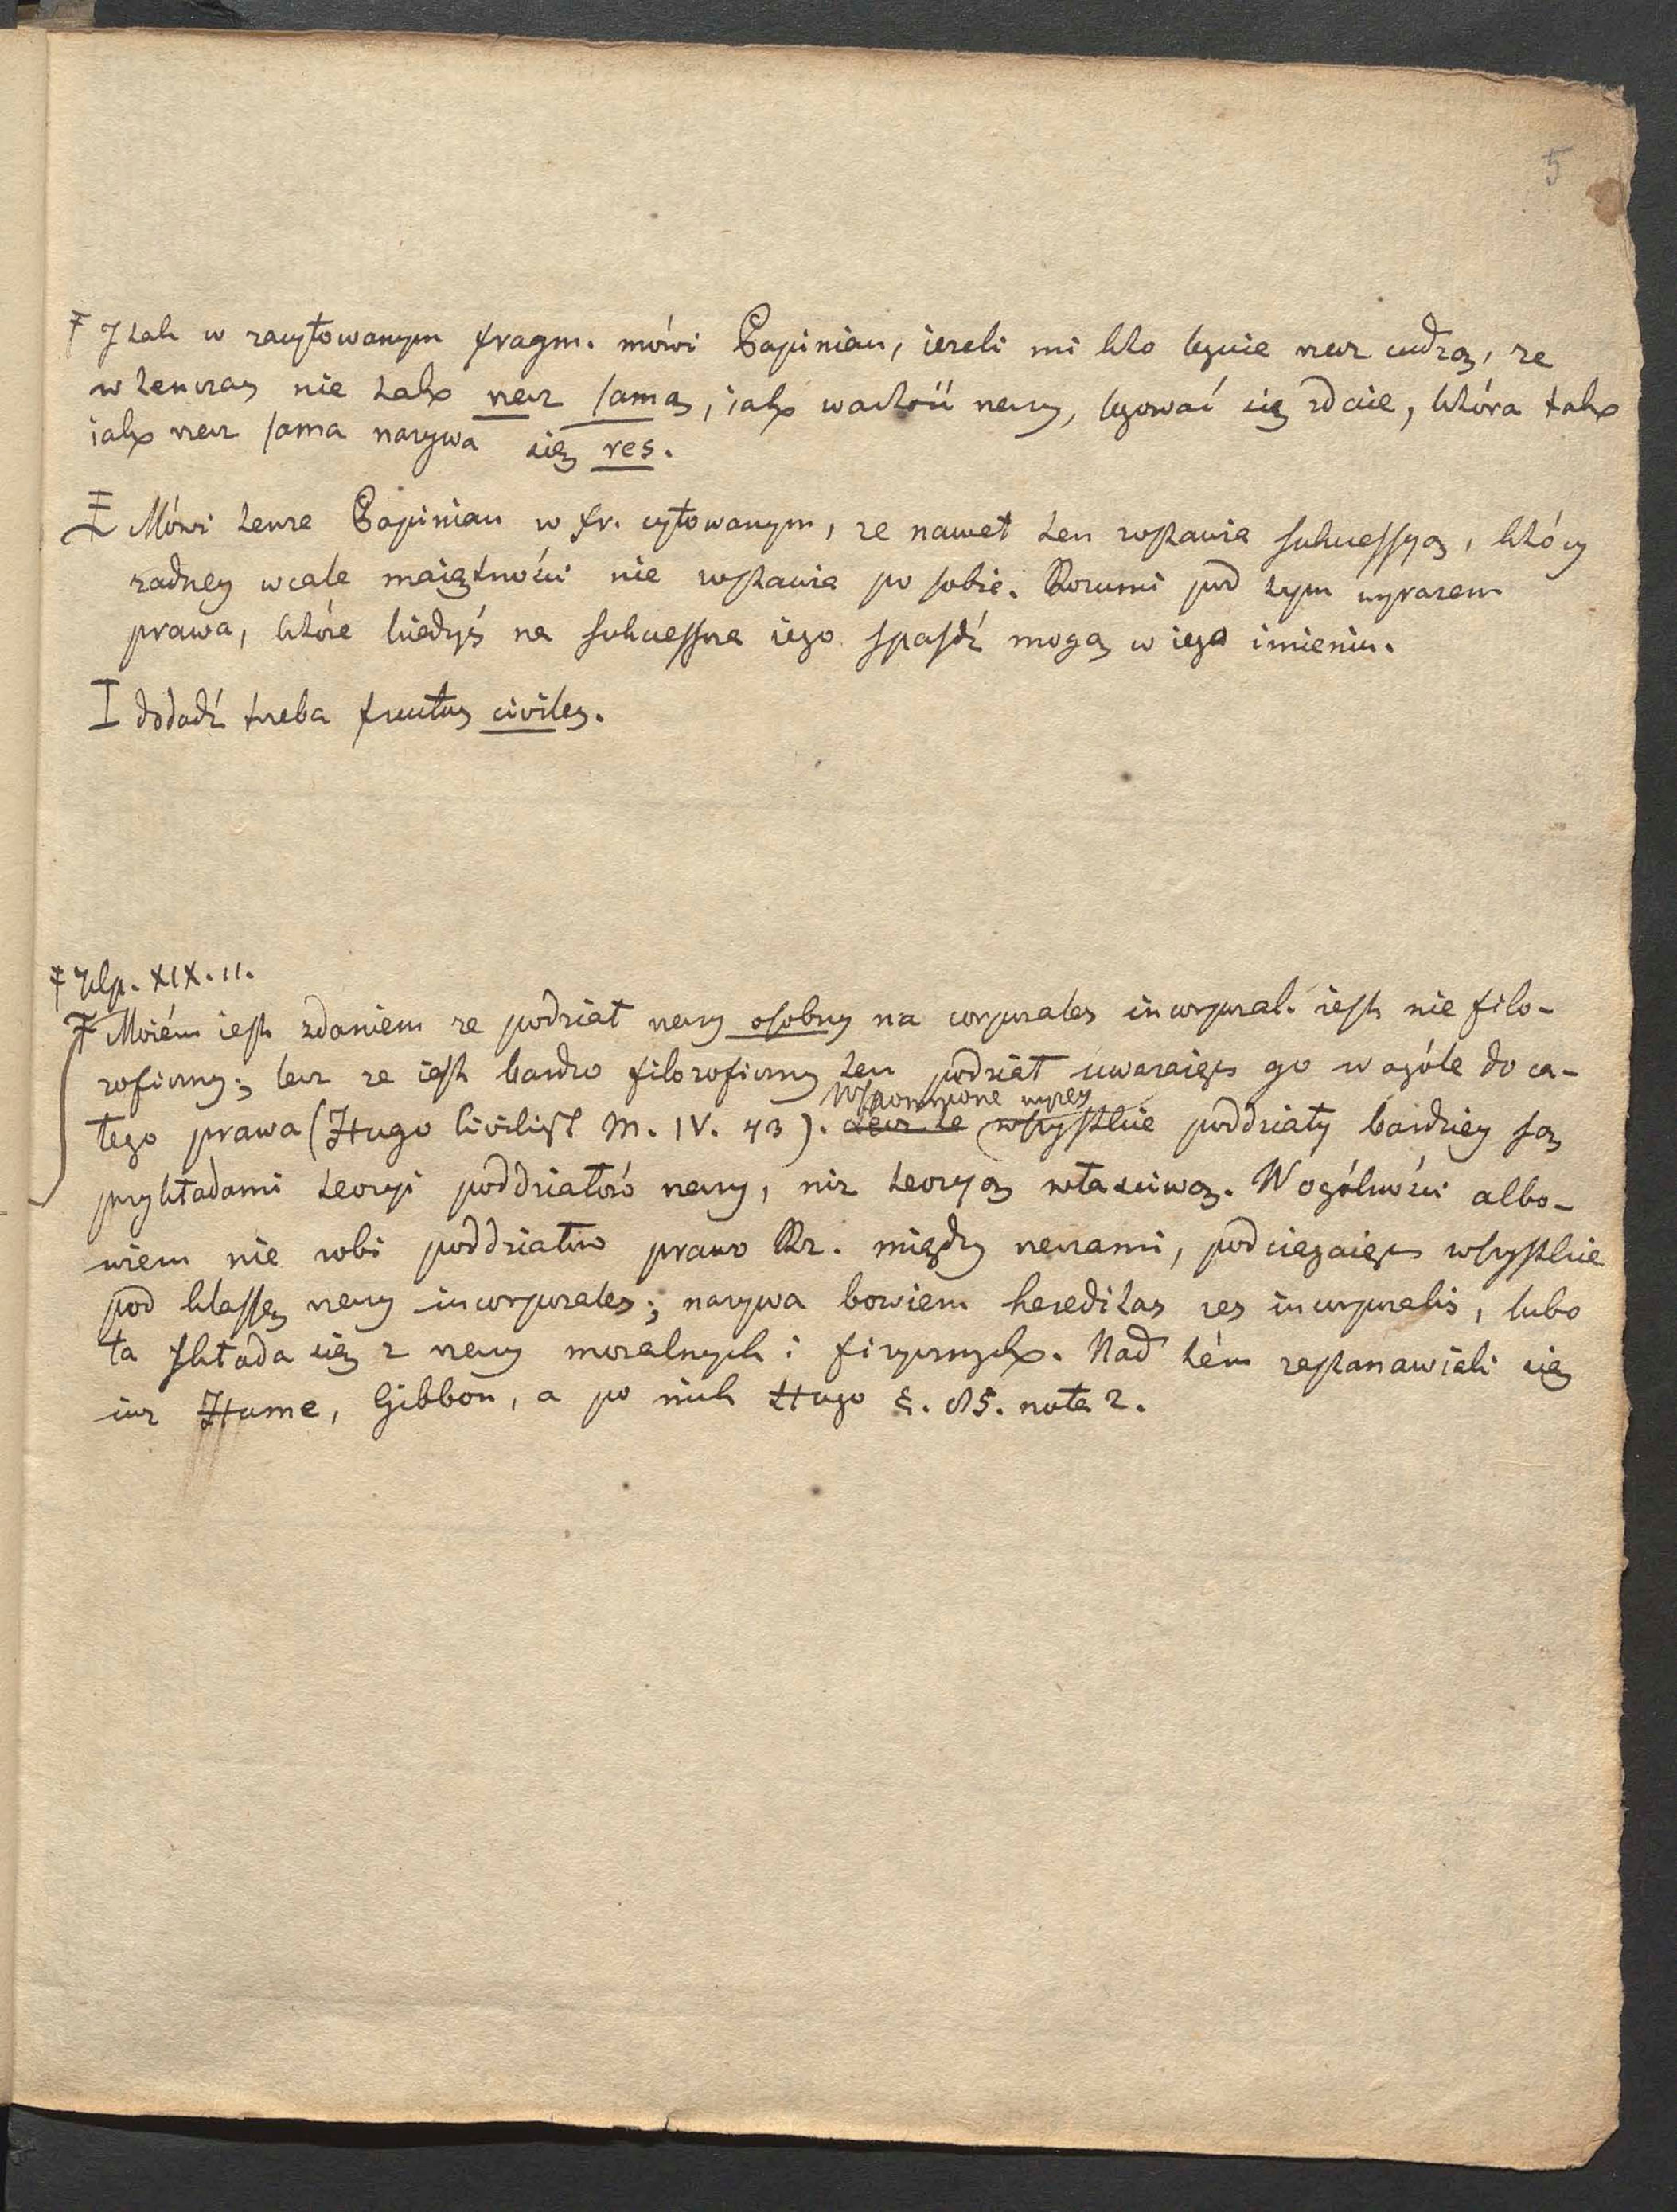 5
Ŧ I tak w zacytowanym fragm. mówi Papinian, ieżeli mi kto leguie rzecz cudzą, że
wtenczas nie tak rzecz samą, iak wartość rzeczy, legować się zdaie, która tak
iak rzecz sama nazywa się res.
Mówi tenże Papinian w fr. cytowanym, że nawet ten zostawia sukcessyą, który
żadney wcale maiętności nie zostawia po sobie. Rozumi pod tym wyrazem
prawa, które kiedyś na sukcessora iego spaśdź mogą w iego imieniu.
I dodadź trzeba fructus civiles.
Ŧ Ulp. XIX. 11.
Ŧ Moiém iest zdaniem że podział rzeczy osobny na corporales incorporal. iest nie filo-
zoficzny; lecz że iest bardzo filozoficzny ten podział uważaiąc go w ogóle do ca-
Wspomnione wyżey
łego prawa (Hugo Civilist M. IV. 43). Lecz te wszystkie poddziały bardziey są
przykładami teoryi poddziałów rzeczy, niż teoryą właściwą. W ogólności albo-
wiem nie robi poddziałów prawo Rz. między rzeczami, podciągaiąc wszystkie
pod klassę rzeczy incorporales; nazywa bowiem hereditas res incorporalis, lubo
ta składa się z rzeczy moralnych i fizycznych. Nad tém zastanawiali się
iuż Hume, Gibbon, a po nich Hugo §. 85. nota 2.